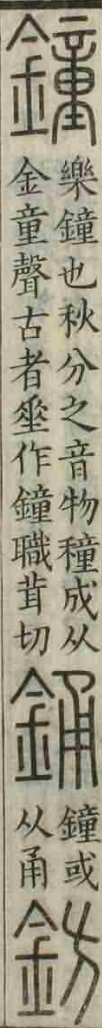 鐘
樂鐘也秋分之音物種成从
金童聲古者垂作鐘職茸切
銿
鐘或
从甬
鈁